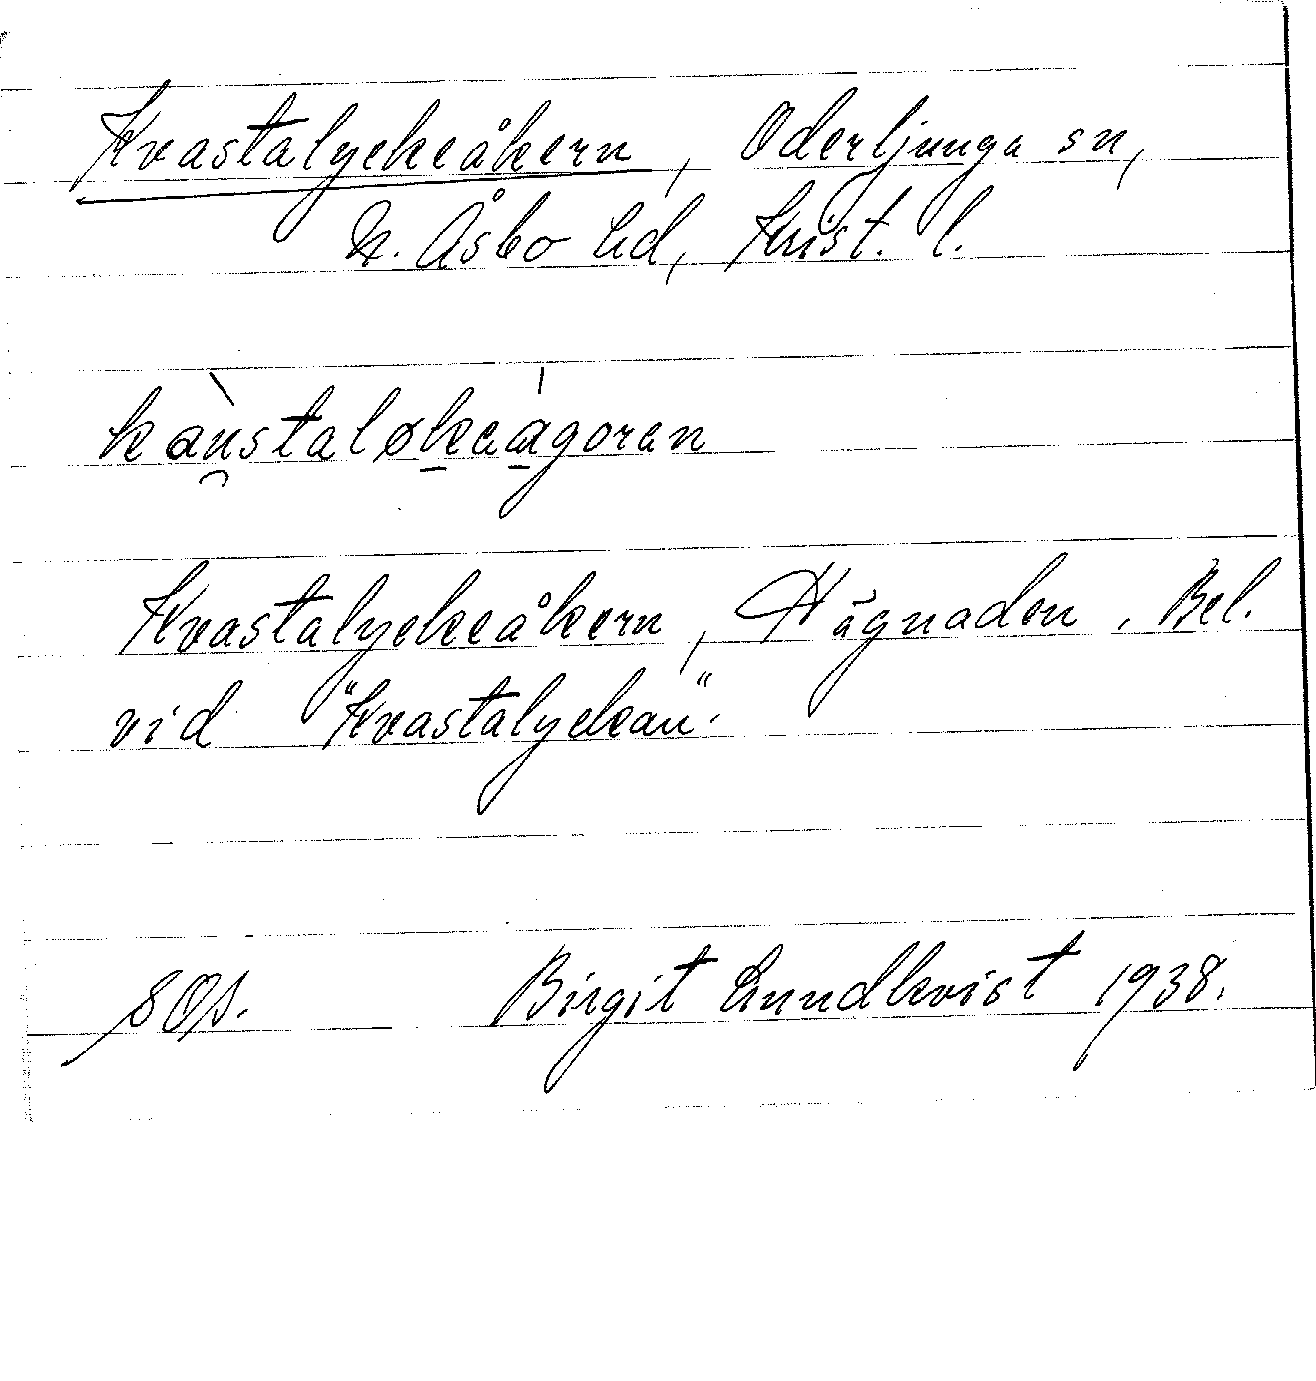 Kvastalyckeåkern, Oderljunga sn,
N. Åsbo hd, Krist. l.
kàu̯staløkaágoran
Kvastalyckeåkern, Hägnaden. Bel.
vid "Kvastalyckan".
Birgit Lundkvist 1938.